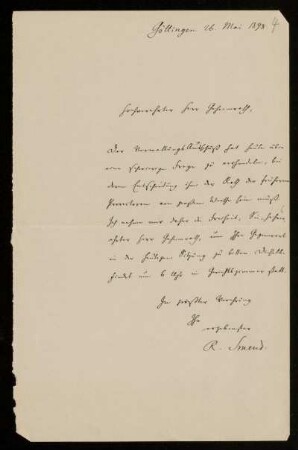 Göttingen 26. Mai 1898
Hochverehrter Herr Geheimrath,
Der Verwaltungs Ausschuß hat heute über
eine schwierige Frage zu verhandeln, bei
deren Entscheidung ihm der Rath der früheren
Prorectoren von großem Werthe sein muß.
Ich nehme mir daher die Freiheit, Sie, hochver-
ehrter Herr Geheimrath, um Ihre Gegenwart
in der heutigen Sitzung zu bitten. Dieselbe
findet um 6 Uhr im Gerichtszimmer statt.
In größter Verehrung
Ihr
ergebenster
R. Smend.